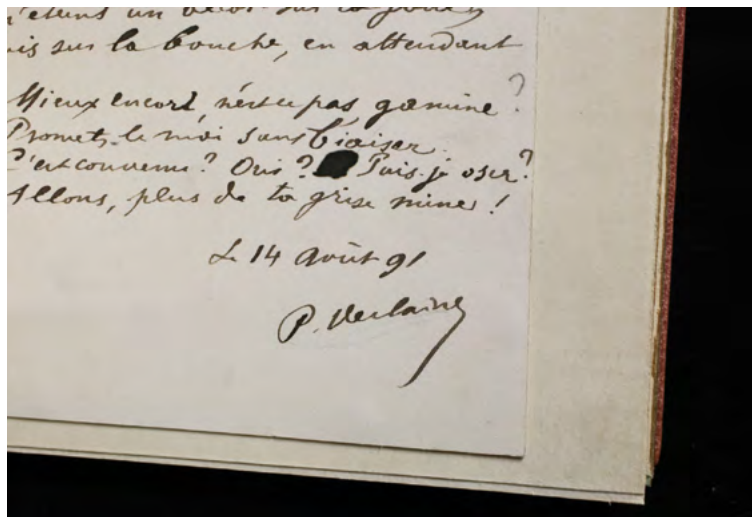 un bécot sur la joue
is sur la bouche, en attendant
Mieux encor, n'est-ce pas gamine ?
Promets-le moi sans biaiser.
C'est convenu ? Oui ? Puis-je oser ?
Allons, plus de ta grise mine !
Le 14 Août 91
P. Verlaine